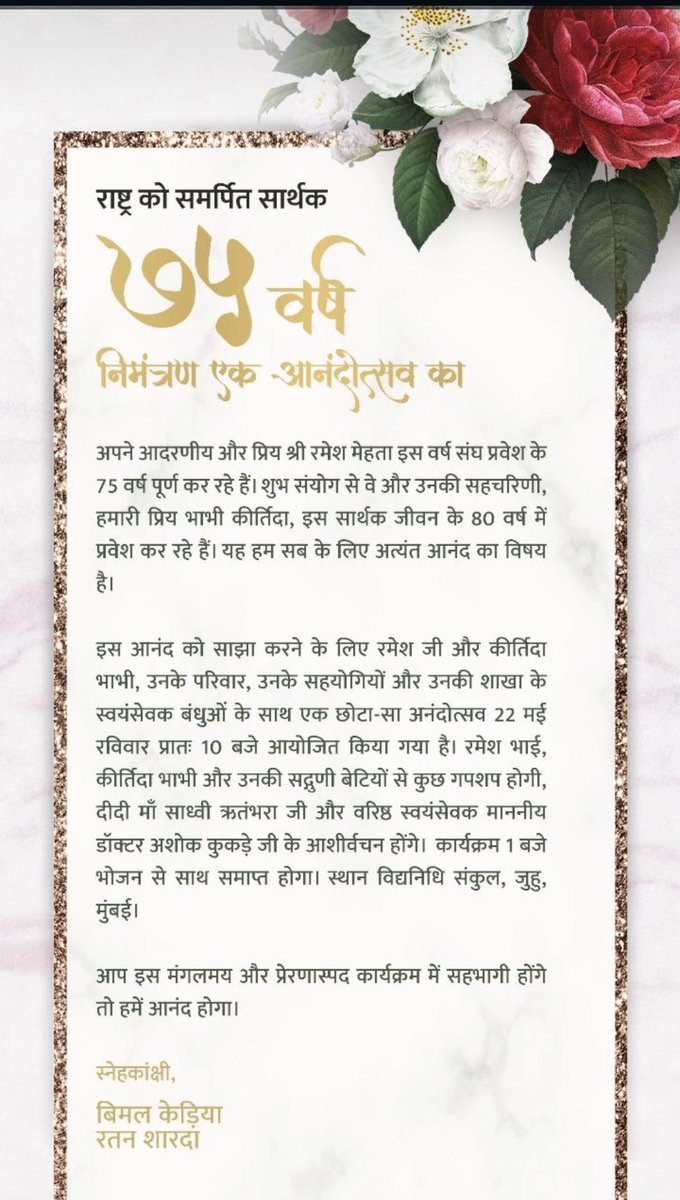 राष्ट्र को समर्पित सार्थक
७५ वर्ष
निमंत्रण एक आनंदोत्सव का
अपने आदरणीय और प्रिय श्री रमेश मेहता इस वर्ष संघ प्रवेश के
75 वर्ष पूर्ण कर रहे हैं। शुभ संयोग से वे और उनकी सहचरिणी,
हमारी प्रिय भाभी कीर्तिदा, इस सार्थक जीवन के 80 वर्ष में
प्रवेश कर रहे हैं। यह हम सब के लिए अत्यंत आनंद का विषय
है।
इस आनंद को साझा करने के लिए रमेश जी और कीर्तिदा
भाभी, उनके परिवार, उनके सहयोगियों और उनकी शाखा के
स्वयंसेवक बंधुओं के साथ एक छोटा-सा अनंदोत्सव 22 मई
रविवार प्रातः 10 बजे आयोजित किया गया है। रमेश भाई,
कीर्तिदा भाभी और उनकी सद्गुणी बेटियों से कुछ गपशप होगी,
दीदी माँ साध्वी ऋतंभरा जी और वरिष्ठ स्वयंसेवक माननीय
डॉक्टर अशोक कुकड़े जी के आशीर्वचन होंगे। कार्यक्रम 1 बजे
भोजन से साथ समाप्त होगा। स्थान विद्यनिधि संकुल, जुहु,
मुंबई।
आप इस मंगलमय और प्रेरणास्पद कार्यक्रम में सहभागी होंगे
तो हमें आनंद होगा।
स्नेहकांक्षी,
बिमल केड़िया
रतन शारदा